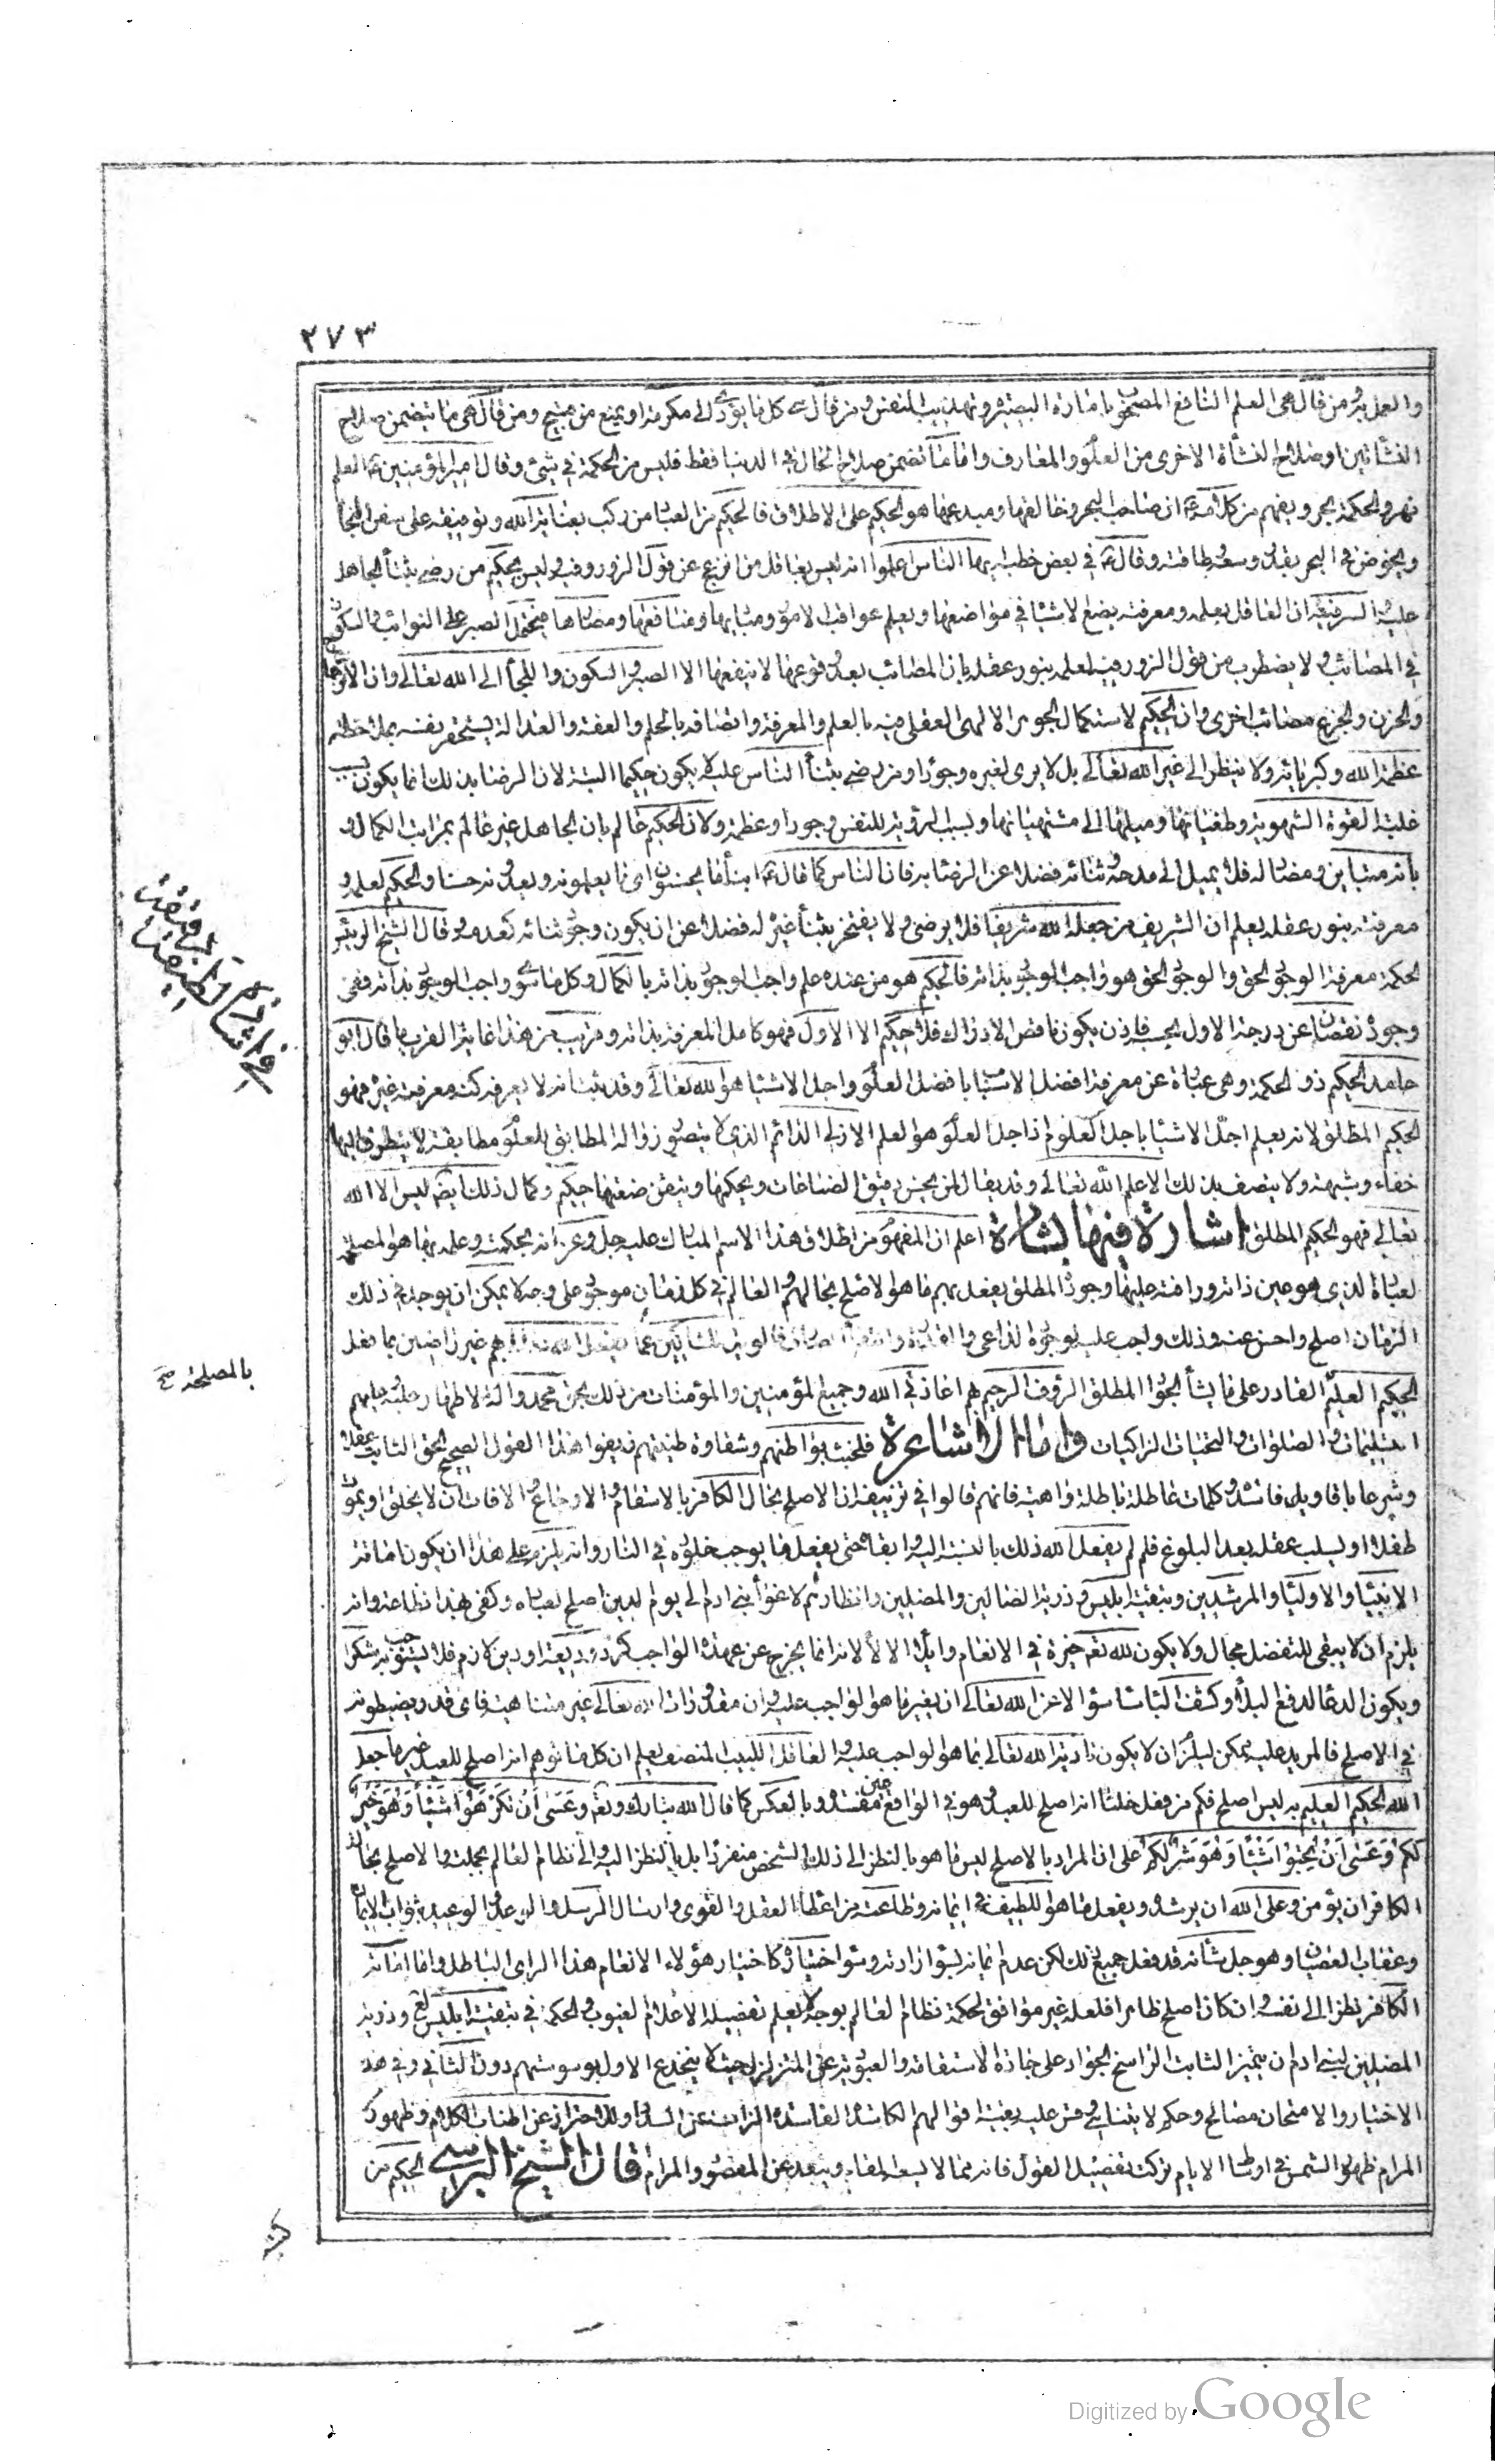 ٢٧٣
والعمل به ومن قال هي العلم النافع المصحوب بانارة البصيرة وتهذيب النفس ومن قال هي كل ما يؤدي الى مكرمة او يمنع من قبيح ومن قال هي ما يتضمن صلاح
النشأتين او صلاح النشأة الاخرى من العلوم والمعارف واما ما تضمن صلاح الحال في الدنيا فقط فليس من الحكمة في شيئ وقال امير المؤمنين ع العلم
نهر والحكمة بحر ويفهم من كلامه ع ان صاحب البحر وخالقها ومبدعها هو الحكيم على الاطلاق فالحكيم من العباد من ركب بعناية الله وتوفيقه على سفن النجاة
ويخوض في البحر بقدر وسعه وطاقته وقال ع في بعض خطبه ايها الناس اعلموا انه ليس بعاقل من انزعج عن قول الزور فيه وليس بحكيم من رضي بثناء الجاهل
عليه السر فيه ان العاقل بعلمه ومعرفته يضع الاشياء في مواضعها ويعلم عواقب الامور ومباديها ومنافعها ومضارها فيتحمل الصبر على النوائب والسكون
في المصائب ولا يضطرب من قول الزور فيه لعلمه بنور عقله بان المصائب بعد وقوعها لا ينفعها الا الصبر والسكون والملجأ الى الله تعالى وان الانزعاج
والحزن والجزع مصائب اخرى وان الحكيم لاستكمال الجوهر الالهي العقلي فيه بالعلم والمعرفة واتصافه بالحلم والعفة والعدالة يستحقر نفسه بملاحظة
عظمة الله وكبريائه ولا ينظر الى غير الله تعالى بل لا يرى لغيره وجودا ومن رضي بثناء الناس عليه لا يكون حكيما البتة لان الرضا بذلك انما يكون بسبب
غلبة القوة الشهوية وطغيانها وميلها الى مشتهياتها وبسبب رؤية للنفس وجودا وعظمة ولان الحكيم عالم بان الجاهل غير عالم بمراتب الكمال و
بانه متباين ومضاد له فلا يميل الى مدحه وثنائه فضلا عن الرضا به فان الناس كما قال ع ابناء ما يحسنون اي ما يعلمونه ويعدونه حسنا والحكيم لعلمه و
معرفته بنور عقله يعلم ان الشريف من جعله الله شريفا فلا يرضى ولا يفتخر بثناء غيره له فضلا عن ان يكون وجود ثنائه كعدمه وقال الشيخ الرئيس
الحكمة معرفة الوجود الحق والوجود الحق هو واجب الوجود بذاته فالحكيم هو من عنده علم واجب الوجود بذاته بالكمال وكل ما سوى واجب الوجود بذاته ففي
وجوده نقصان عن درجة الاول بحسبه فاذن يكون ناقص الادراك فلا حكيم الا الاول فهو كامل المعرفة بذاته وقريب من هذا غاية القرب ما قال ابو
حامد الحكيم ذو الحكمة وهي عبارة عن معرفة افضل الاشياء بافضل العلوم واجل الاشياء هو الله تعالى وقد ثبت انه لا يعرفه كنه معرفته غيره فهو
الحكيم المطلق لانه يعلم اجل الاشياء باجل العلوم اذ اجل العلوم هو العلم الازلي الدائم الذي لا يتصور زواله المطابق للمعلوم مطابقة لا يتطرق اليها
خفاء وشبهة ولا يتصف بذلك الا علم الله تعالى وقد يقال لمن يحسن دقيق الصناعات ويحكمها ويتقن صنعتها حكيم وكمال ذلك ايضا ليس الا الله
تعالى فهو الحكيم المطلق اشارة فيها بشارة اعلم ان المفهوم من اطلاق هذا الاسم المبارك عليه جل وعز انه بحكمته وعلمه بما هو المصلحة
لعباده الذي هو عين ذاته ورافته عليها وجوده المطلق يفعل بهم ما هو الاصلح بحالهم والعالم في كل زمان موجود على وجه لا يمكن ان يوجد في ذلك
الزمان اصلح واحسن عنه وذلك واجب عليه لوجود الداعي والقدرة وانتفاء الصارف فالويل للشاكين عما يفعل الله بهم غير راضين بما فعل
الحكيم العليم القادر على ما يشاء الجواد المطلق الرؤف الرحيم بهم اعاذني الله وجميع المؤمنين والمؤمنات من ذلك بحق محمد واله الاطهار عليه وعليهم
التسليمات والصلوات والتحيات الزاكيات واما الاشاعرة فلخبث بواطنهم وشقاوة طينتهم زيفوا هذا القول الصحيح الحق الثابت عقلا
وشرعا باقاويل فاسدة وكلمات عاطلة باطلة واهية فانهم قالوا في تزييفه ان الاصلح بحال الكافر بالاسقام والاوجاع والافات ان لا يخلق او يموت
طفلا او يسلب عقله بعد البلوغ فلم لم يفعل الله ذلك بالنسبة اليه وابقاه حتى يفعل ما يوجب خلوده في النار وانه يلزم على هذا ان يكون اماتة
الانبياء والاولياء والمرشدين وتبقية ابليس وذريته الضالين والمضلين وانظارهم لاغواء بني ادم الى يوم الدين اصلح لعباده وكفى بهذا فظاعة وانه
يلزم ان لا يبقى للتفضل مجال ولا يكون لله تعالى خيرة في الانعام وايلاء الالاء لانه انما يخرج عن عهدة الواجب كرد وديعة او دين لازم فلا يستوجب به شكرا
ويكون الدعا لدفع البلاء وكشف الباساء سؤالا عن الله تعالى ان يغير ما هو الواجب عليه وان مقدورات الله تعالى غير متناهية فاي قدر يضبطونه
في الاصلح فالمزيد عليه ممكن ليلزم ان لا يكون تادية الله تعالى بما هو الواجب عليه والعاقل اللبيب المنصف يعلم ان كل ما توهم انه اصلح للعبد غير ما جعل
الله الحكيم العليم به ليس اصلح فكم من فعل خلنا انه اصلح للعبد وهو في الواقع عين مفسدة وبالعكس كما قال الله تبارك وتعالى وَعَسَى أَنْ تَكْرَهُوا شَيْئًا وَهُوَ خَيْرٌ
لَكُمْ وَعَسَى أَنْ تُحِبُّوا شَيْئًا وَهُوَ شَرٌّ لَكُمْ على ان المراد بالاصلح ليس ما هو بالنظر الى ذلك الشخص منفردا بل بالنظر اليه والى نظام العالم بجملته والاصلح بحال
الكافر ان يؤمن وعلى الله ان يرشده ويفعل ما هو اللطيف في ايمانه وطاعته من اعطاء العقل والقوى وارسال الرسل والوعد والوعيد بثواب الايمان
وعقاب العصيان وهو جل شأنه قد فعل جميع ذلك لكن عدم ايمانه بسوء ارادته وسوء اختياره كاختيار هؤلاء الانعام هذا الراي الباطل واما اماتة
الكافر نظرا الى نفسه وان كان اصلح ظاهرا فلعله غير موافق لحكمة نظام العالم بوجه لا يعلم تفصيله الا علام الغيوب والحكمة في تبقية ابليس لع وذريته
المضلين لبني ادم ان يتميز الثابت الراسخ الجواد على جادة الاستقامة والعبودية عن المتزلزل حيث لا ينخدع الاول بوسوستهم دون الثاني وفي هذا
الاختيار والامتحان مصالح وحكم لا يتناهى وقس عليه بقية اقوالهم الكاسدة الفاسدة الزائغة عن السداد وللاحتراز عن اطناب الكلام وظهور
المرام ظهور الشمس في اوساط الايام تركت تفصيل القول فانه مما لا يسعه المقام ويبعد عن المقصود والمرام قال الشيخ البرسي الحكيم من
بالمصلحة صح